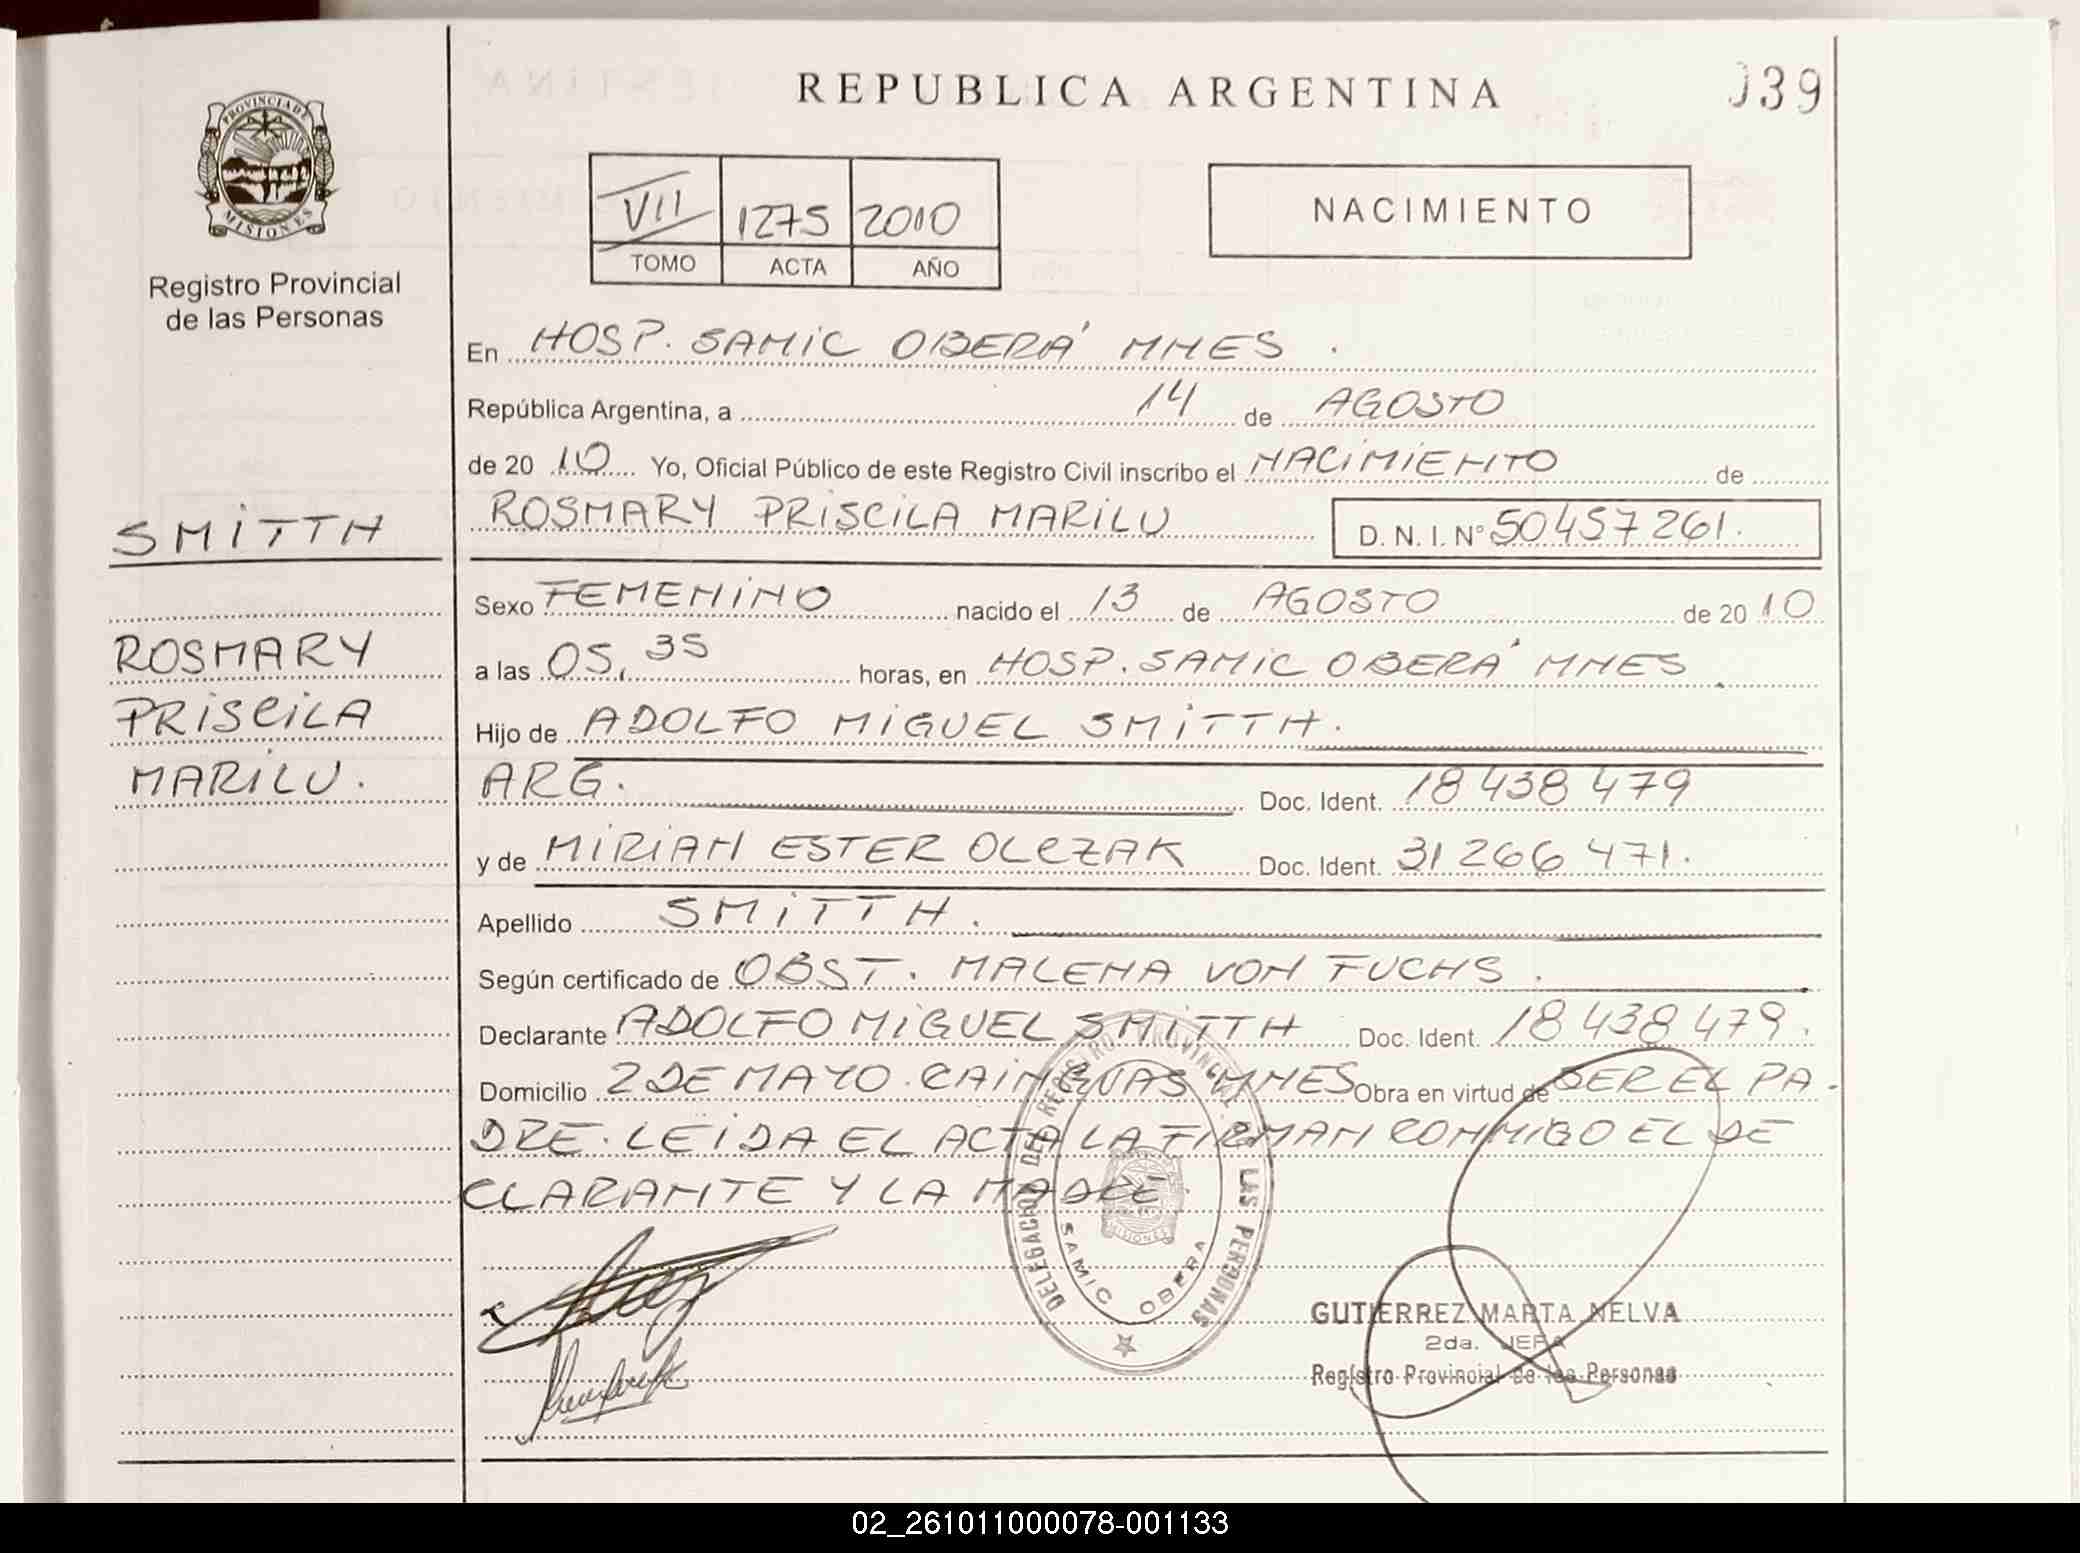 REPUBLICA ARGENTINA
039
PROVINCIA DE
MISIONES
Registro Provincial
de las Personas
VII 1275 2010
TOMO ACTA AÑO
NACIMIENTO
En HOSP. SAMIC OBERÁ MNES.
República Argentina, a 14 de AGOSTO
de 20 10 Yo, Oficial Público de este Registro Civil inscribo el NACIMIENTO de
ROSMARY PRISCILA MARILU D. N. I. N° 50457261.
SMITTH
ROSMARY
PRISCILA
MARILU.
Sexo FEMENINO nacido el 13 de AGOSTO de 20 10
a las 05,35 horas, en HOSP. SAMIC OBERÁ MNES.
Hijo de ADOLFO MIGUEL SMITTH.
ARG. Doc. Ident. 18 438 479
y de MIRIAN ESTER OLCZAK Doc. Ident. 31 266 471.
Apellido SMITTH.
Según certificado de OBST. MALENA VON FUCHS.
Declarante ADOLFO MIGUEL SMITTH Doc. Ident. 18 438 479.
Domicilio 2 DE MAYO. CAINGUAS MNES Obra en virtud de SER EL PA-
DRE. LEIDA EL ACTA LA FIRMAN CONMIGO EL DE
CLARANTE Y LA MADRE.
DELEGACION DEL REGISTRO PROVINCIAL DE LAS PERSONAS
SAMIC OBERA
MISIONES
GUTIERREZ MARTA NELVA
2da. JEFA
Registro Provincial de las Personas
02_261011000078-001133